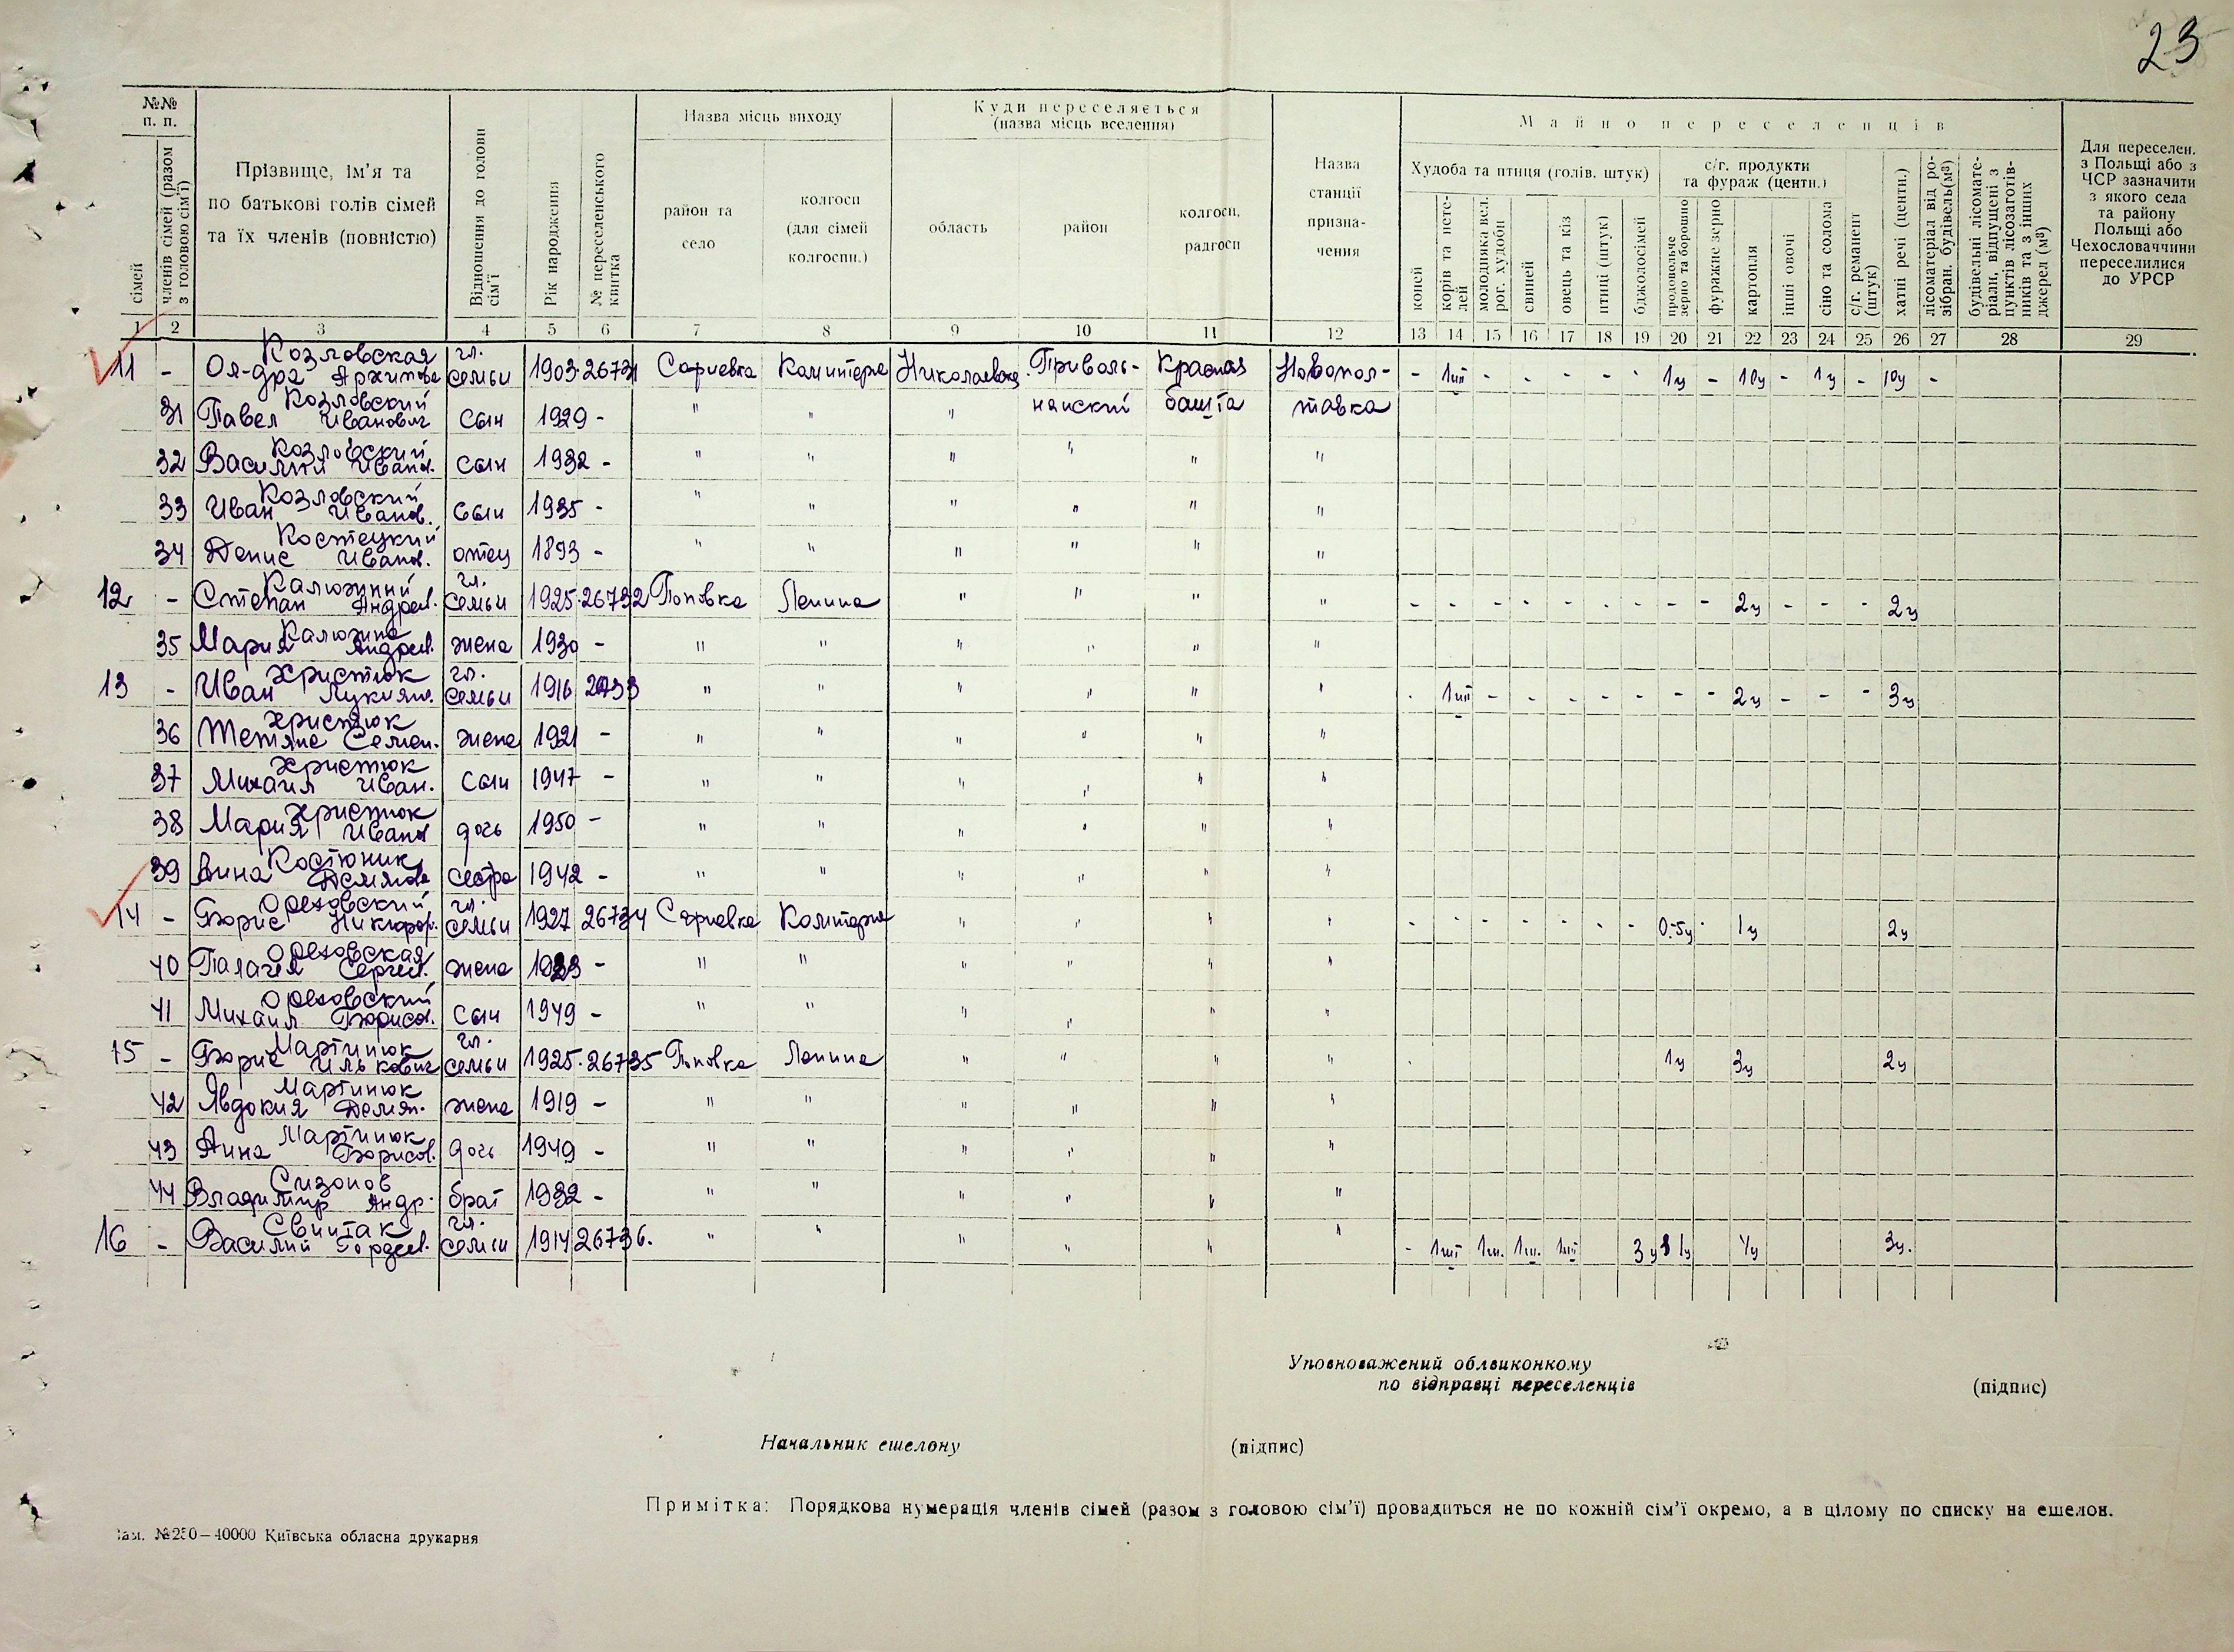 23
№№ п. п.
сімей
членів сімей (разом з головою сім'ї)
Прізвище, ім'я та
по батькові голів сімей
та їх членів (повністю)
Відношення до голови сім'ї
Рік народження
№ переселенського квитка
Назва місць виходу
район та село
колгосп (для сімей колгоспн.)
Куди переселяється
(назва місць вселення)
область
район
колгосп, радгосп
Назва станції призна-чення
Майно переселенців
Худоба та птиця (голів, штук)
коней
корів та нете-лей
молодняка вел. рог. худоби
свиней
овець та кіз
птиці (штук)
бджолосімей
с/г. продукти та фураж (центн.)
продовольче зерно та борошно
фуражне зерно
картопля
інші овочі
сіно та солома
с/г. реманент (штук)
хатні речі (центн.)
лісоматеріал від ро-зібран. будівель (м³)
будівельні лісомате-ріали, відпущені з пунктів лісозаготів-ників та з інших джерел (м³)
Для переселен. з Польщі або з ЧСР зазначити з якого села та району Польщі або Чехословаччини переселилися до УРСР
1 2 3 4 5 6 7 8 9 10 11 12 13 14 15 16 17 18 19 20 21 22 23 24 25 26 27 28 29
11 - Козловская гл. семьи 1903 26731 Николаевска Приволь- Красная Новопол- - 1шт - - - - - 1ц - 10ц - 1ц - 10ц -
31 Козловский Павел Иванович сын 1929 - " " " нанский башта тавка
32 Козловский Василий Иванов. сын 1932 - " " " " " "
33 Козловский Иван Иванов. сын 1935 - " " " " " "
34 Костецкий Денис Иванов. отец 1893 - " " " " " "
12 - Калюжний Степан Андреев. гл. семьи 1925 26732 Поповка Ленина " " " " - - - - - - - - - 2ц - - - 2ц
35 Калюжна Мария Андреев. жена 1930 - " " " " " "
13 - Христюк Иван Лукиян. гл. семьи 1916 " " " " " " 1шт - - - - - - - 2ц - - - 3ц
36 Христюк Тетяна Семен. жена 1921 - " " " " " "
37 Христюк Михаил Иван. сын 1947 - " " " " " "
38 Христюк Мария Иванов дочь 1950 - " " " " " "
39 Костюник сестра 1942 - " " " " " "
14 - Борис Никифор. гл. семьи 1927 26734 " " " " - - - - - - - 0.5ц 1ц 2ц
40 Палагея Сергеев. жена - " " " " " "
41 Михаил Борисов. сын 1949 - " " " " " "
15 - Мартинюк Борис Илькович гл. семьи 1925 26735 Поповка Ленина " " " " 1ц 3ц 2ц
42 Мартинюк Явдокия Демян. жена 1919 - " " " " " "
43 Мартинюк Анна Борисов. дочь 1949 - " " " " " "
44 Сизонов Владимир Андр. брат 1932 - " " " " " "
16 - Свинтак Василий Гордеев. гл. семьи 1914 26736. " " " " " " - 1шт 1ш. 1ш. 1шт 3ц.
Уповноважений облвиконкому
по відправці переселенців (підпис)
Начальник ешелону (підпис)
Примітка: Порядкова нумерація членів сімей (разом з головою сім'ї) провадиться не по кожній сім'ї окремо, а в цілому по списку на ешелон.
Зам. №250—40000 Київська обласна друкарня